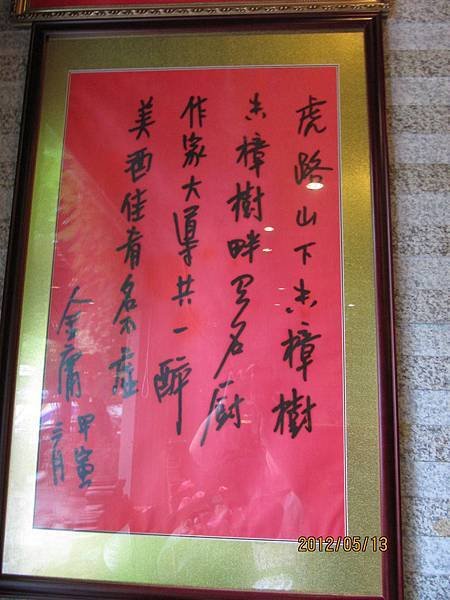 虎路山下樟樹
樟樹畔名廚
作家大導共一醉
美酒佳肴名不虛
金庸
甲寅
二月
2012/05/13